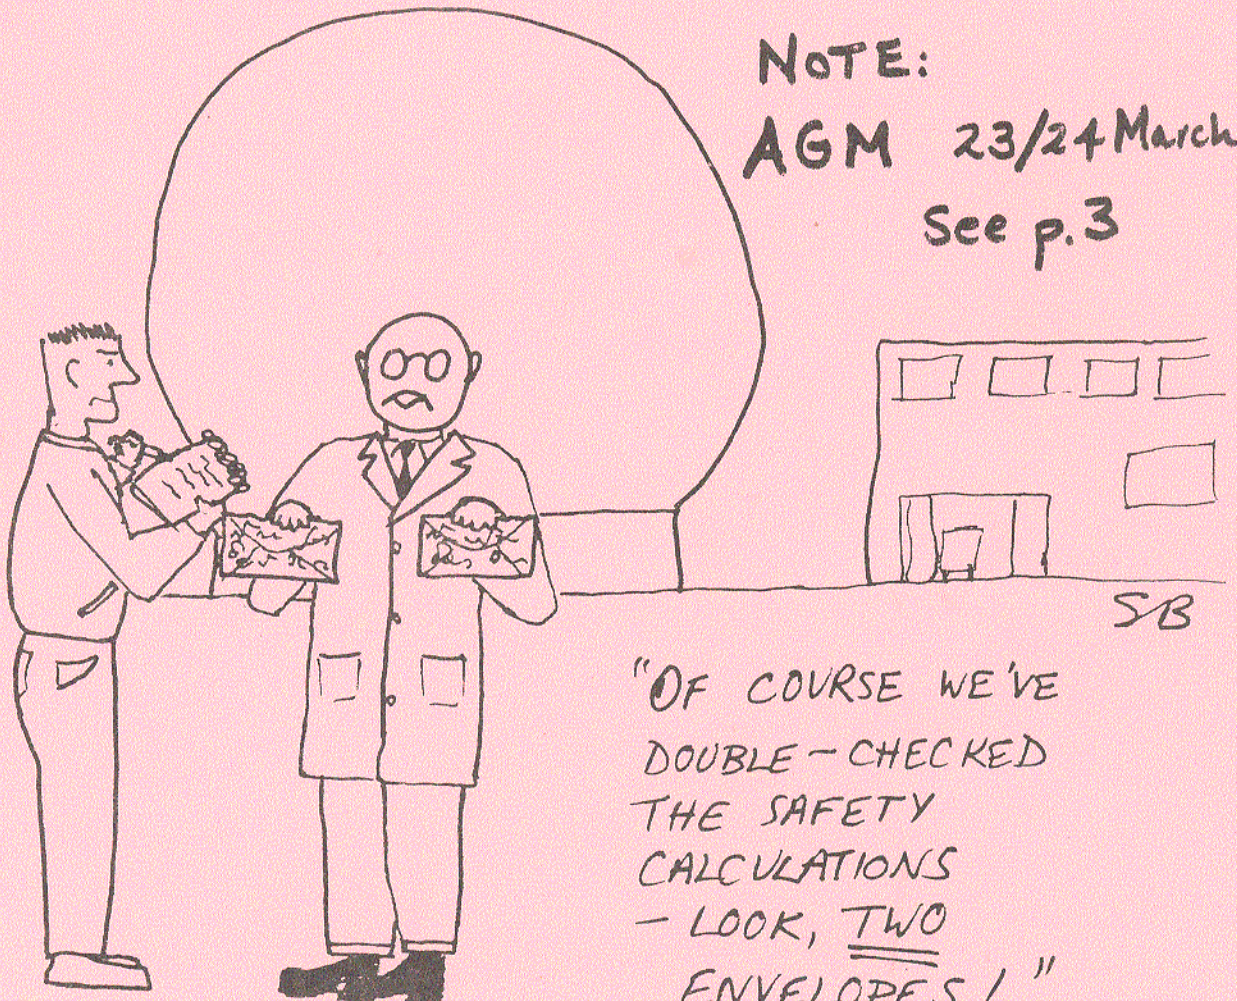 NOTE:
AGM 23/24 March
See p.3
SB
"OF COURSE WE'VE
DOUBLE-CHECKED
THE SAFETY
CALCULATIONS
- LOOK, TWO
ENVELOPES!"